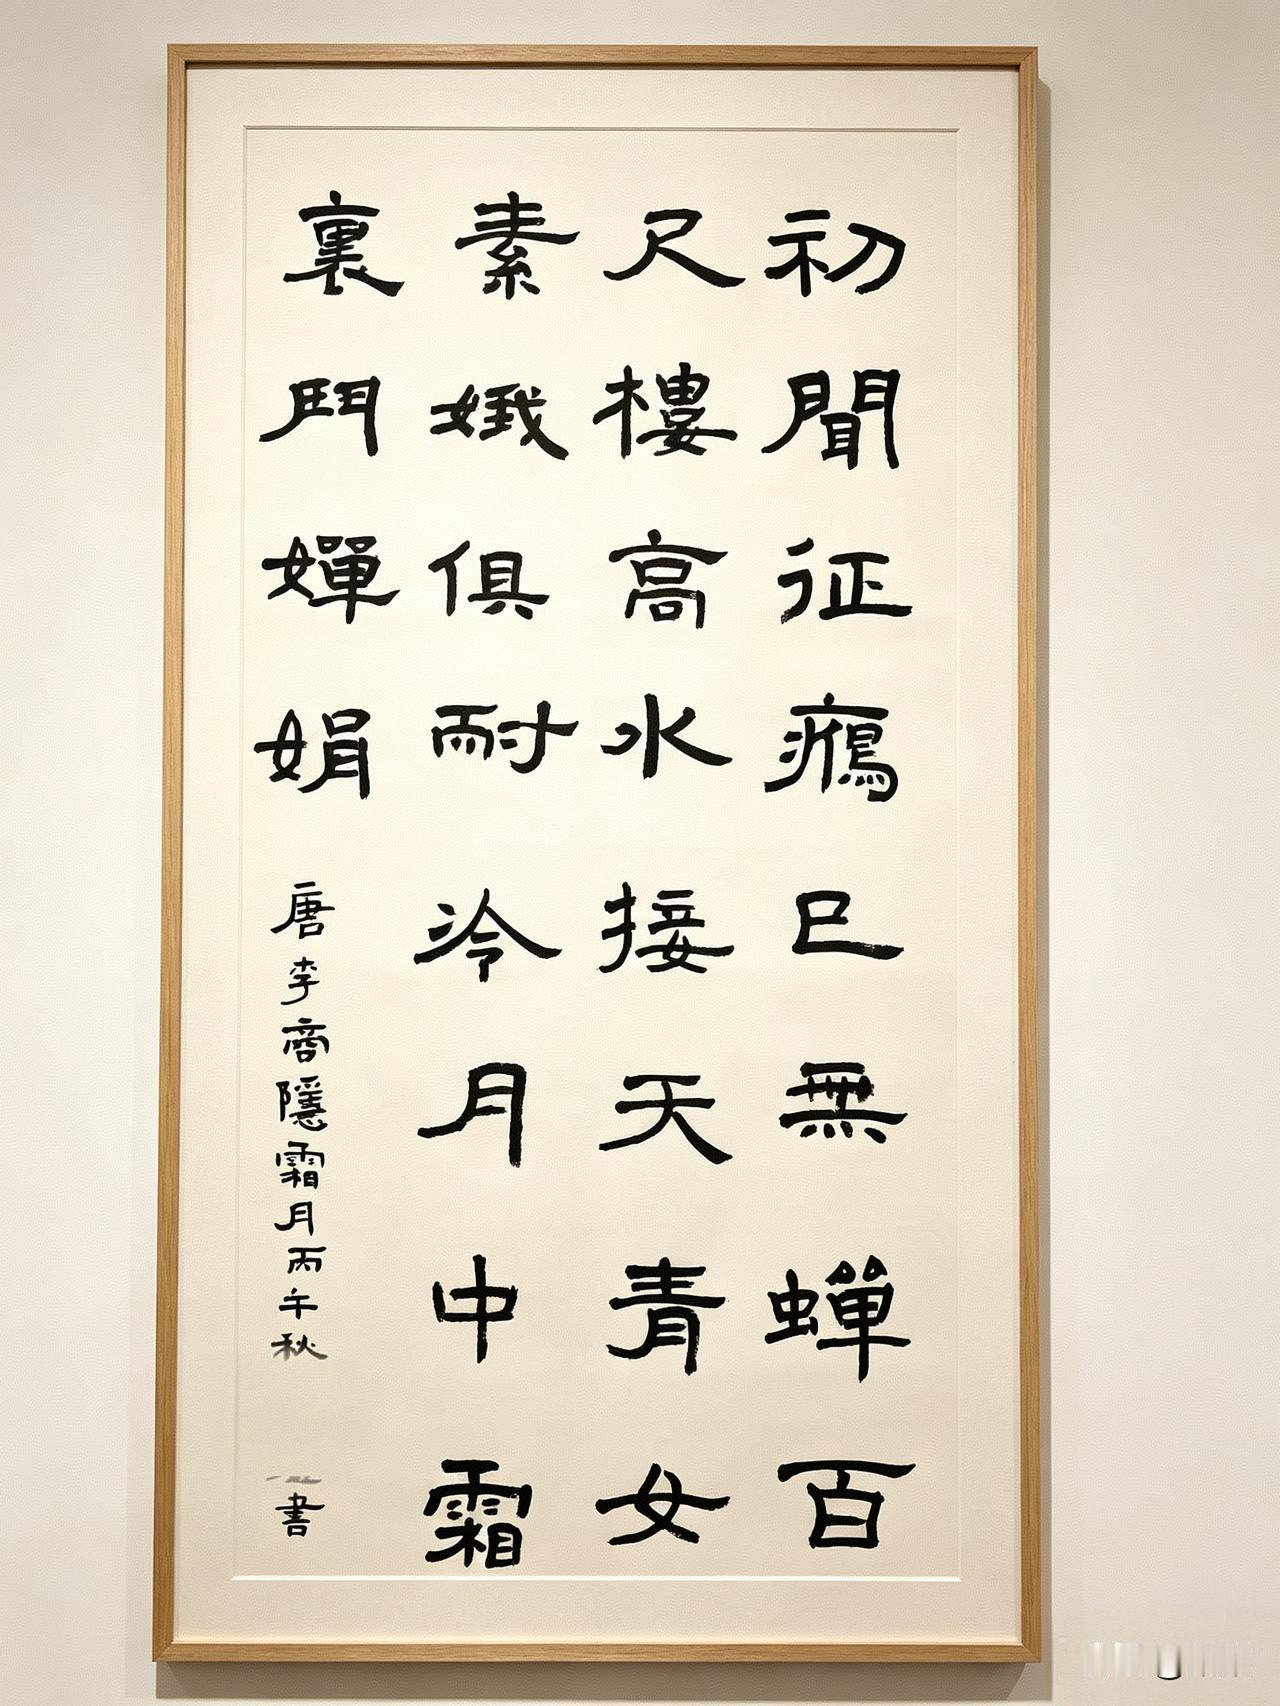 初聞征鴈已無蟬百
尺樓高水接天青女
素娥俱耐冷月中霜
裏鬥嬋娟
唐李商隱霜月丙午秋
書